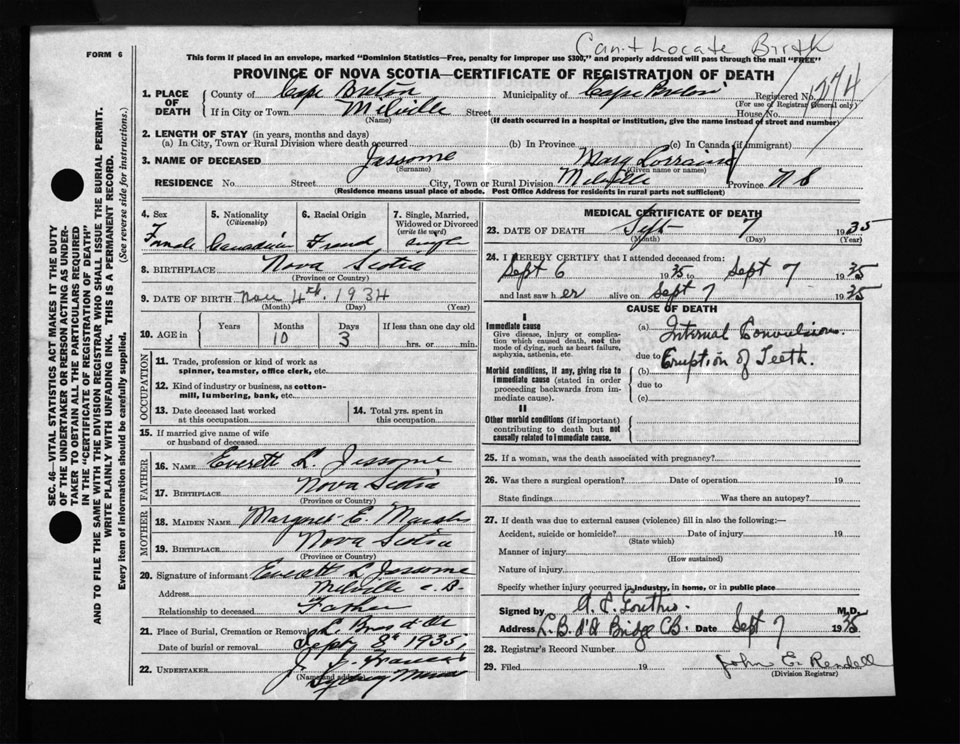 FORM 6
Can't Locate Birth
This form if placed in an envelope, marked "Dominion Statistics—Free, penalty for improper use $300," and properly addressed will pass through the mail "FREE"
PROVINCE OF NOVA SCOTIA—CERTIFICATE OF REGISTRATION OF DEATH
1. PLACE OF DEATH
County of Cape Breton Municipality of Cape Breton Registered No. 1274
(For use of Registrar General only)
If in City or Town Milville Street House No.
(Name) (If death occurred in a hospital or institution, give the name instead of street and number)
2. LENGTH OF STAY (in years, months and days)
(a) In City, Town or Rural Division where death occurred (b) In Province (c) In Canada (if immigrant)
3. NAME OF DECEASED Jessome Mary Lorraine
(Surname) (Given name or names)
RESIDENCE No. Street City, Town or Rural Division Milville Province N S
(Residence means usual place of abode. Post Office Address for residents in rural parts not sufficient)
4. Sex
Female
5. Nationality
(Citizenship)
Canadian
6. Racial Origin
French
7. Single, Married,
Widowed or Divorced
(write the word)
single
8. BIRTHPLACE Nova Scotia
(Province or Country)
9. DATE OF BIRTH Nov 4th 1934
(Month) (Day) (Year)
10. AGE in
Years Months Days If less than one day old
10 3 hrs. or min.
OCCUPATION
11. Trade, profession or kind of work as
spinner, teamster, office clerk, etc.
12. Kind of industry or business, as cotton-
mill, lumbering, bank, etc.
13. Date deceased last worked
at this occupation
14. Total yrs. spent in
this occupation
15. If married give name of wife
or husband of deceased
FATHER
16. NAME Everett L. Jessome
17. BIRTHPLACE Nova Scotia
(Province or Country)
MOTHER
18. MAIDEN NAME Margret E.
19. BIRTHPLACE Nova Scotia
(Province or Country)
20. Signature of informant Everett L Jessome
Address Milville C. B.
Relationship to deceased Father
21. Place of Burial, Cremation or Removal L. Bras d'Or
Date of burial or removal Sept 8th 1935
22. UNDERTAKER J. J.
(Name and address)
Sydney Mines
MEDICAL CERTIFICATE OF DEATH
23. DATE OF DEATH Sept 7 1935
(Month) (Day) (Year)
24. I HEREBY CERTIFY that I attended deceased from:
Sept 6 1935 to Sept 7 1935
and last saw h er alive on Sept 7 1935
CAUSE OF DEATH
I
Immediate cause
Give disease, injury or complica-
tion which caused death, not the
mode of dying, such as heart failure,
asphyxia, asthenia, etc.
(a) Internal Convulsions.
due to
Morbid conditions, if any, giving rise to
immediate cause (stated in order
proceeding backwards from im-
mediate cause).
(b) Eruption of Teeth.
due to
(c)
II
Other morbid conditions (if important)
contributing to death but not
causally related to immediate cause.
25. If a woman, was the death associated with pregnancy?
26. Was there a surgical operation? Date of operation 19
State findings Was there an autopsy?
27. If death was due to external causes (violence) fill in also the following:—
Accident, suicide or homicide? Date of injury 19
(State which)
Manner of injury
(How sustained)
Nature of injury
Specify whether injury occurred in industry, in home, or in public place
Signed by M.D.
Address L. B. d'O Bridge CB. Date Sept 7 1935
28. Registrar's Record Number
29. Filed 19 John E. Rendell
(Division Registrar)
SEC. 46—VITAL STATISTICS ACT MAKES IT THE DUTY
OF THE UNDERTAKER OR PERSON ACTING AS UNDER-
TAKER TO OBTAIN ALL THE PARTICULARS REQUIRED
IN THE "CERTIFICATE OF REGISTRATION OF DEATH"
AND TO FILE THE SAME WITH THE DIVISION REGISTRAR WHO SHALL ISSUE THE BURIAL PERMIT.
WRITE PLAINLY WITH UNFADING INK. THIS IS A PERMANENT RECORD.
Every item of information should be carefully supplied. (See reverse side for instructions.)